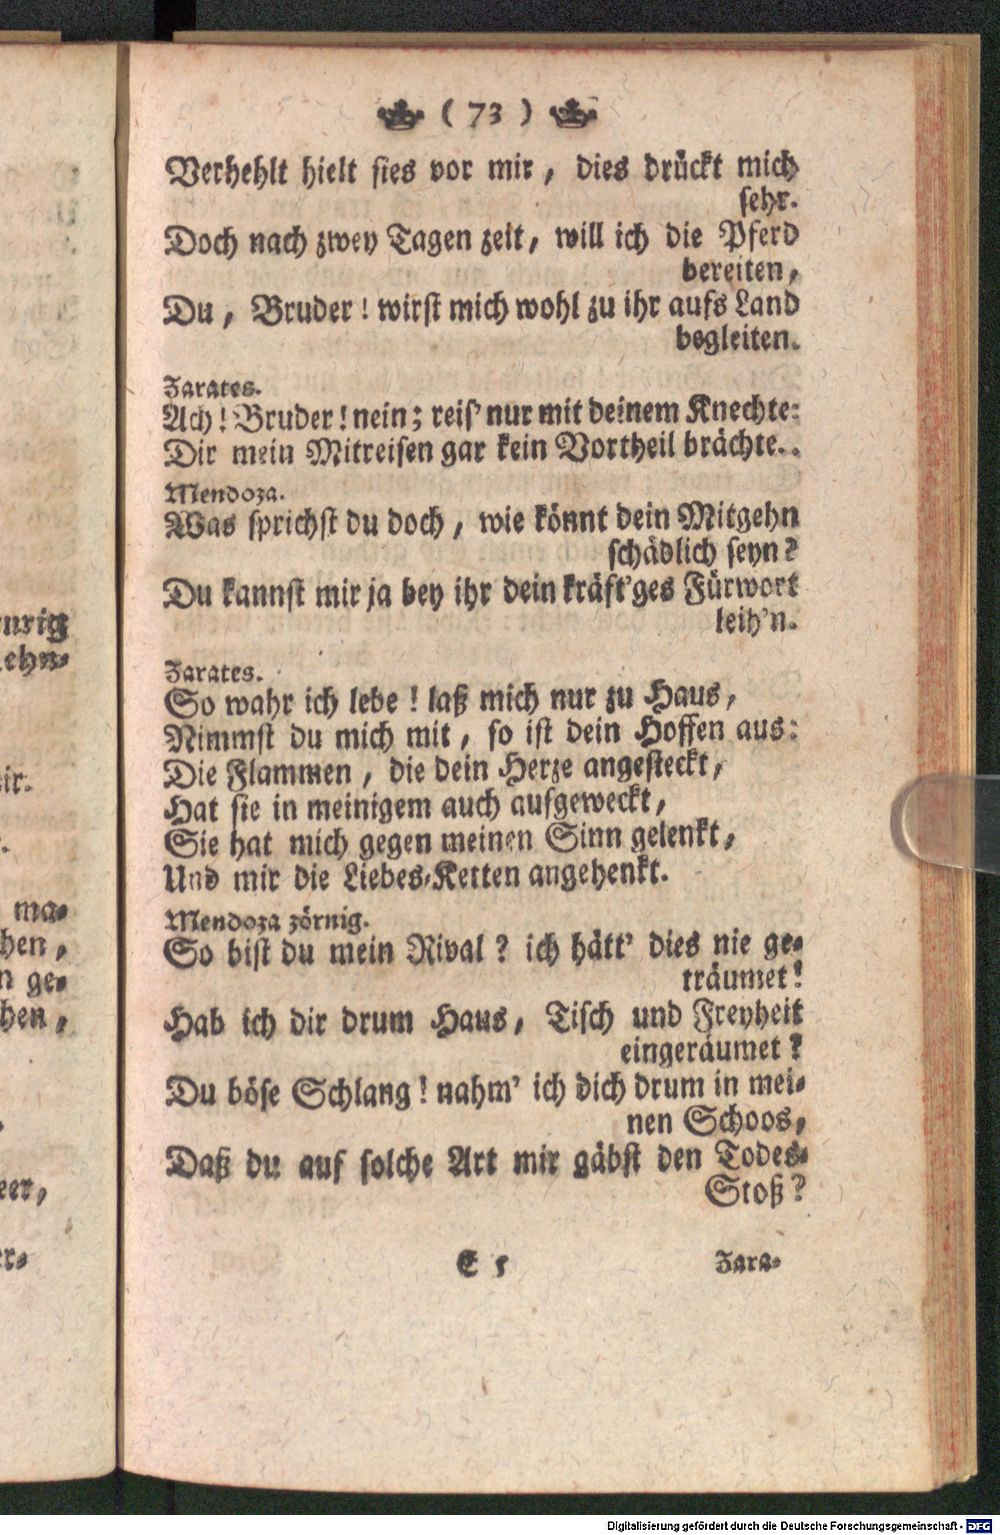 ( 73 )
Verhehlt hielt sies vor mir, dies drückt mich
sehr.
Doch nach zwey Tagen zeit, will ich die Pferd
bereiten,
Du, Bruder! wirst mich wohl zu ihr aufs Land
begleiten.
Zarates.
Ach! Bruder! nein; reis' nur mit deinem Knechte:
Dir mein Mitreisen gar kein Vortheil brächte..
Mendoza.
Was sprichst du doch, wie könnt dein Mitgehn
schädlich seyn?
Du kannst mir ja bey ihr dein kräft'ges Fürwort
leih'n.
Zarates.
So wahr ich lebe! laß mich nur zu Haus,
Nimmst du mich mit, so ist dein Hoffen aus:
Die Flammen, die dein Herze angesteckt,
Hat sie in meinigem auch aufgeweckt,
Sie hat mich gegen meinen Sinn gelenkt,
Und mir die Liebes-Ketten angehenkt.
Mendoza zörnig.
So bist du mein Rival? ich hätt' dies nie ge-
träumet!
Hab ich dir drum Haus, Tisch und Freyheit
eingeräumet?
Du böse Schlang! nahm' ich dich drum in mei-
nen Schoos,
Daß du auf solche Art mir gäbst den Todes-
Stoß?
E 5
Zara-
Digitalisierung gefördert durch die Deutsche Forschungsgemeinschaft - DFG